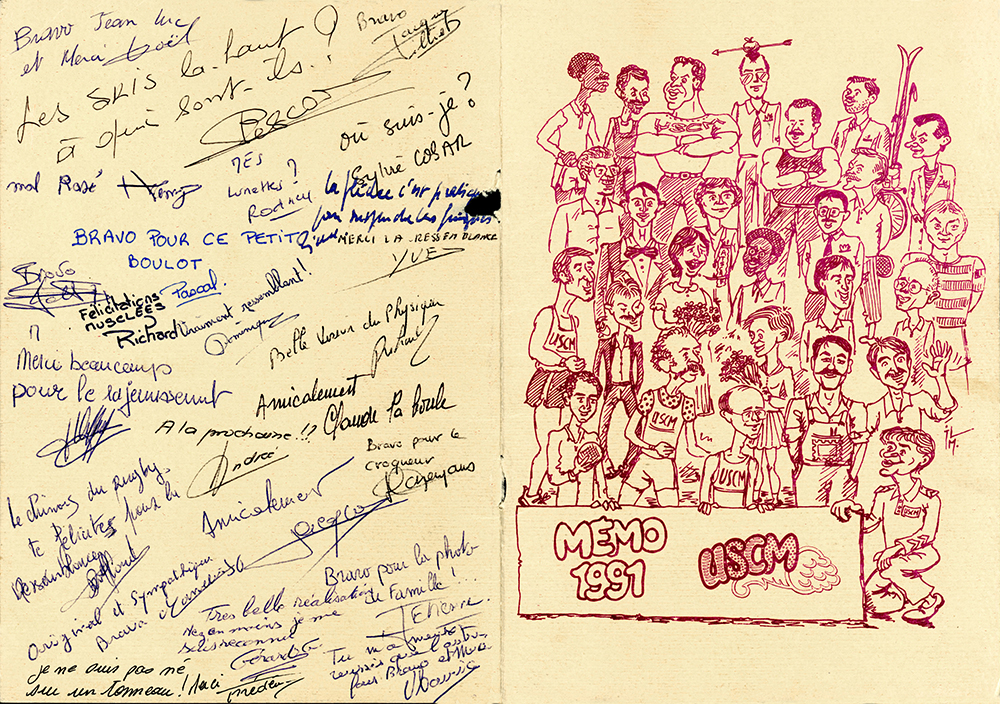 Bravo Jean Luc
et Merci Joël
Bravo
Jacques
Les skis la-haut ?
à qui sont-ils !
où suis-je ?
Sylvie COBAR
mal Rasé
MES
lunettes ?
Rodney
la flèche c'est pratique
pour suspendre les fringues
BRAVO POUR CE PETIT
BOULOT
Pascal.
MERCI LA RESSEMBLANCE
YVES
Bravo
Felicitations
MUSCLÉES
Richard
Vraiment ressemblant !
Dominique
Belle Vision du Physique
Merci beaucoup
pour le rajeunissement
Amicalement
Claude la Boule
A la prochaine !!?
André
Bravo pour le
croqueur
Le Chinois du Rugby
te félicite pour la
ressemblance
Amicalement
Original et Sympathique
Bravo
Tres belle réalisation
Neanmoins je me
suis reconnu
Gérard
Bravo pour la photo
de Famille !...
Etienne
Tu m'a
Bravo et Merci
je ne suis pas né
sur un tonneau ! Merci
USCM
USCM
USCM
USCM
USCM
MÉMO
1991
USCM